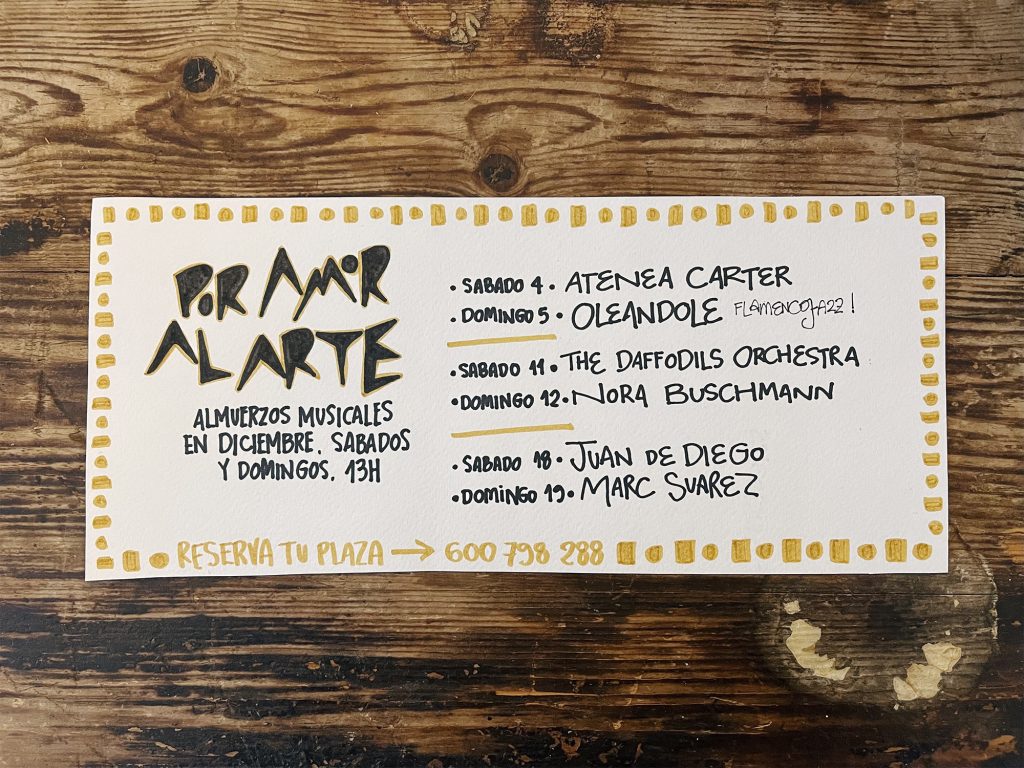 POR AMOR
AL ARTE
ALMUERZOS MUSICALES
EN DICIEMBRE, SABADOS
Y DOMINGOS, 13H
• SABADO 4 • ATENEA CARTER
• DOMINGO 5 • OLEANDOLE FLAMENCOJAZZ!
• SABADO 11 • THE DAFFODILS ORCHESTRA
• DOMINGO 12 • NORA BUSCHMANN
• SABADO 18 • JUAN DE DIEGO
• DOMINGO 19 • MARC SUAREZ
RESERVA TU PLAZA → 600 798 288